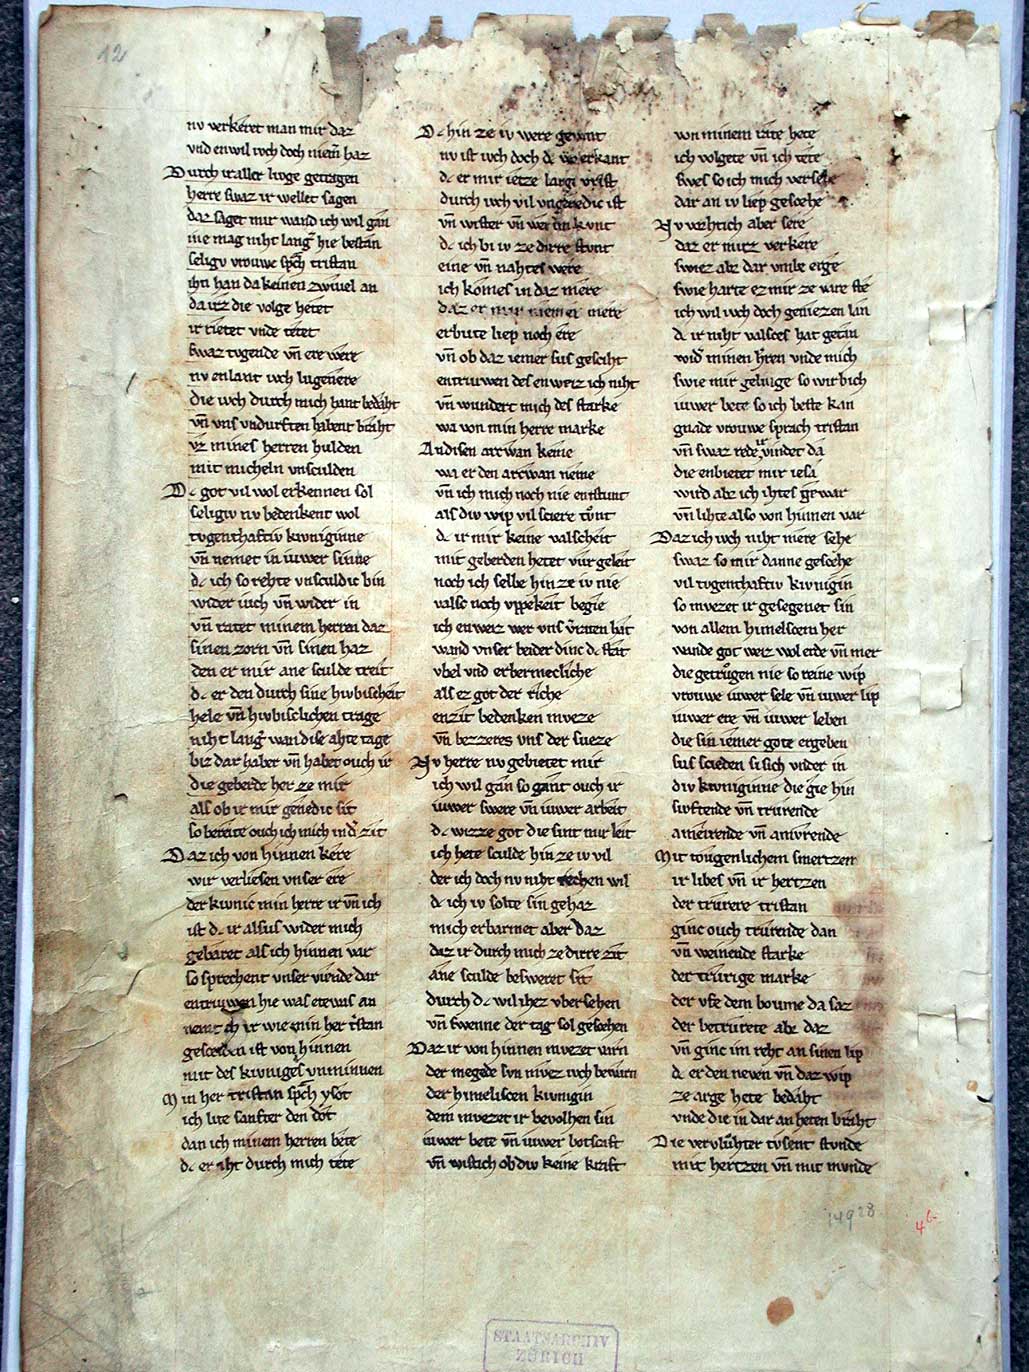 12
nv verkeret man mir daz
vnd enwil ivch doch niem̄ haz
Durch ir aller livge getragen
herre swaz ir wellet sagen
daz saget mir wand ich wil gan
ine mag niht lang̃ hie bestan
seligv vrouwe sp̃ch tristan
ihn han da keinen zwiuel an
da irz die volge hetet
ir rietet vnde tetet
swaz tvgende vn̄ ere were
nv enlant ivch lvgenere
die ivch durch mich hant bedaht
vn̄ vns vndurften habent braht
vz mines herren hulden
mit micheln vnsculden
Dc got vil wol erkennen sol
seligiv nv bedenkent wol
tvgenthaftiv kivniginne
vn̄ nemet in iuwer sinne
dc ich so rehte vnsculdic bin
wider iuch vn̄ wider in
vn̄ ratet minem herren daz
sinen zorn vn̄ sinen haz
den er mir ane sculde treit
dc er den durch sine hivbischeit
hele vn̄ hivbisclichen trage
niht lang̃ wan dise ahte tage
biz dar habet vn̄ habet ouch ir
die geberde her ze mir
als ob ir mir genedic sit
so bereite ouch ich mich in dr̃ zit
Daz ich von hinnen kere
wir verliesen vnser ere
der kivnic min herre ir vn̄ ich
ist dc ir alsus wider mich
gebaret als ich hinnen var
so sprechent vnser viende dar
entriuwen hie was etewas an
nemt ch ir wie min her t̃stan
gesceiden ist von hinnen
mit des kivniges̃ vnminnen
Min her tristan sp̃ch ysot
ich lite sanfter den dot
dan ich minem herren bete
dc er iht durch mich tete
Dc hin ze iv were gewant
nv ist ivch doch dc wol erkant
dc er mir ietze largi vrist
durch ivch vil vngenedic ist
vn̄ wister vn̄ wer im kvnt
dc ich bi iv ze dirre stvnt
eine vn̄ nahtes were
ich komes in daz mere
daz er mir niemer mere
erbute liep noch ere
vn̄ ob daz iemer sus gesciht
entriuwen des enweiz ich niht
vn̄ wundert mich des starke
wa von min herre marke
An disen arcwan keme
wa er den arcwan neme
vn̄ ich mich noch nie enstunt
als div wip vil sciere tv̊nt
dc ir mir keine valscheit
mit geberden hetet vur geleit
noch ich selbe hin ze iv nie
valsc noch vppekeit begie
ich enweiz wer vns v̊raten hat
wand vnser beider dinc dc stat
vbel vnd erbermecliche
als ez got der riche
enzit bedenken mveze
vn̄ bezzeres vns der sueze
Nv herre nv gebietet mir
ich wil gan so gant ouch ir
iuwer swere vn̄ iuwer arbeit
dc wizze got die sint mir leit
ich hete sculde hin ze iv vil
der ich doch nv niht rechen wil
dc ich iv solte sin gehaz
mich erbarmet aber daz
daz ir durch mich ze dirre zit
ane sculde besweret sit
durch dc wil ihez vbersehen
vn̄ swenne der tag sol gescehen
Daz ir von hinnen mvezet varn
der megede svn mvez ivch bewarn
der himeliscen kivnigin
dem mvezet ir bevolhen sin
iuwer bete vn̄ iuwer botscaft
vn̄ wistich ob div keine kraft
von minem rate hete
ich volgete vn̄ ich tete
swes so ich mich versehe
dar an iv liep gescehe
Nv vvrhtich aber sere
daz er mirz verkere
swiez abz dar vmbe erge
swie harte ez mir ze vare ste
ich wil ivch doch geniezen lan
dc ir niht valsces hat getan
widr̃ minen h̊ren vnde mich
swie mir gelinge so wirbich
iuwer bete so ich beste kan
gnade vrouwe sprach tristan
vn̄ swaz rede ir vindet da
die enbietet mir iesa
wird abz ich ihtes gewar
vn̄ lihte also von hinnen var
Daz ich ivch niht mere sehe
swaz so mir danne gescehe
vil tvgenthaftiv kivnigin
so mvezet ir gesegenet sin
von allem himelscem her
wande got weiz wol erde vn̄ mer
die getrůgen nie so reine wip
vrouwe iuwer sele vn̄ iuwer lip
iuwer ere vn̄ iuwer leben
die sin iemer gote ergeben
sus scieden si sich vnder in
div kivniginne die gie hin
suftende vn̄ trurende
ameirende vn̄ amivrende
Mit tougenlichem smertzen
ir libes vn̄ ir hertzen
der trurere tristan
ginc ouch trurende dan
vn̄ weinende starke
der trurige marke
der vfe dem boume da saz
der betrurete abz daz
vn̄ ginc im reht an sinen lip
dc er den neven vn̄ daz wip
ze arge hete bedaht
vnde die in dar an heten braht
Die vervlůhter tvsent stvnde
mit hertzen vn̄ mit mvnde
14928
46
STAATSARCHIV
ZÜRICH